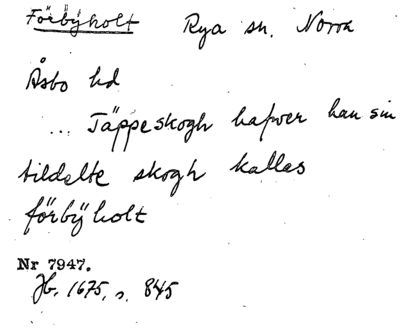 Förbÿholt Rya sn. Norra
Åsbo hd
... Täppeskogh hafwer han sin
tildelte skogh kallas
förbÿholt
Nr 7947.
Jb. 1675, s. 845